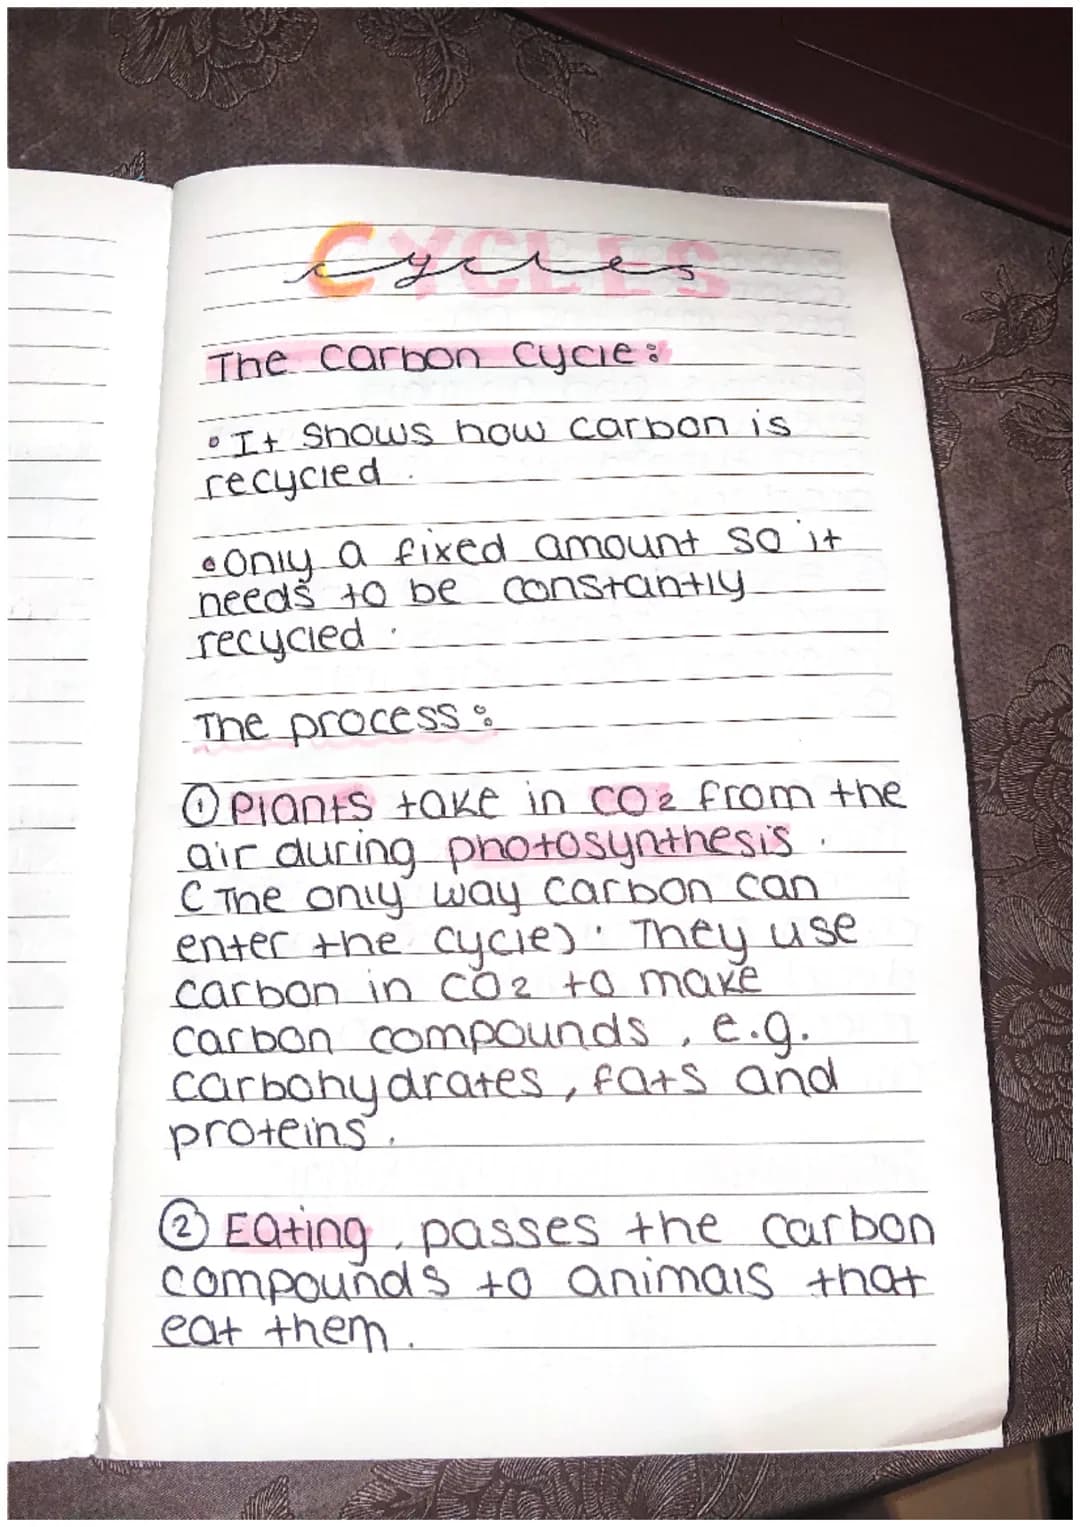 CYCLES
cycles
The carbon cycle:
• It shows how carbon is
recycled.
• Only a fixed amount so it
needs to be constantly
recycled.
The process:
① Plants take in CO2 from the
air during photosynthesis.
(The only way carbon can
enter the cycle). They use
carbon in CO2 to make
carbon compounds, e.g.
carbohydrates, fats and
proteins.
② Eating, passes the carbon
compounds to animals that
eat them.